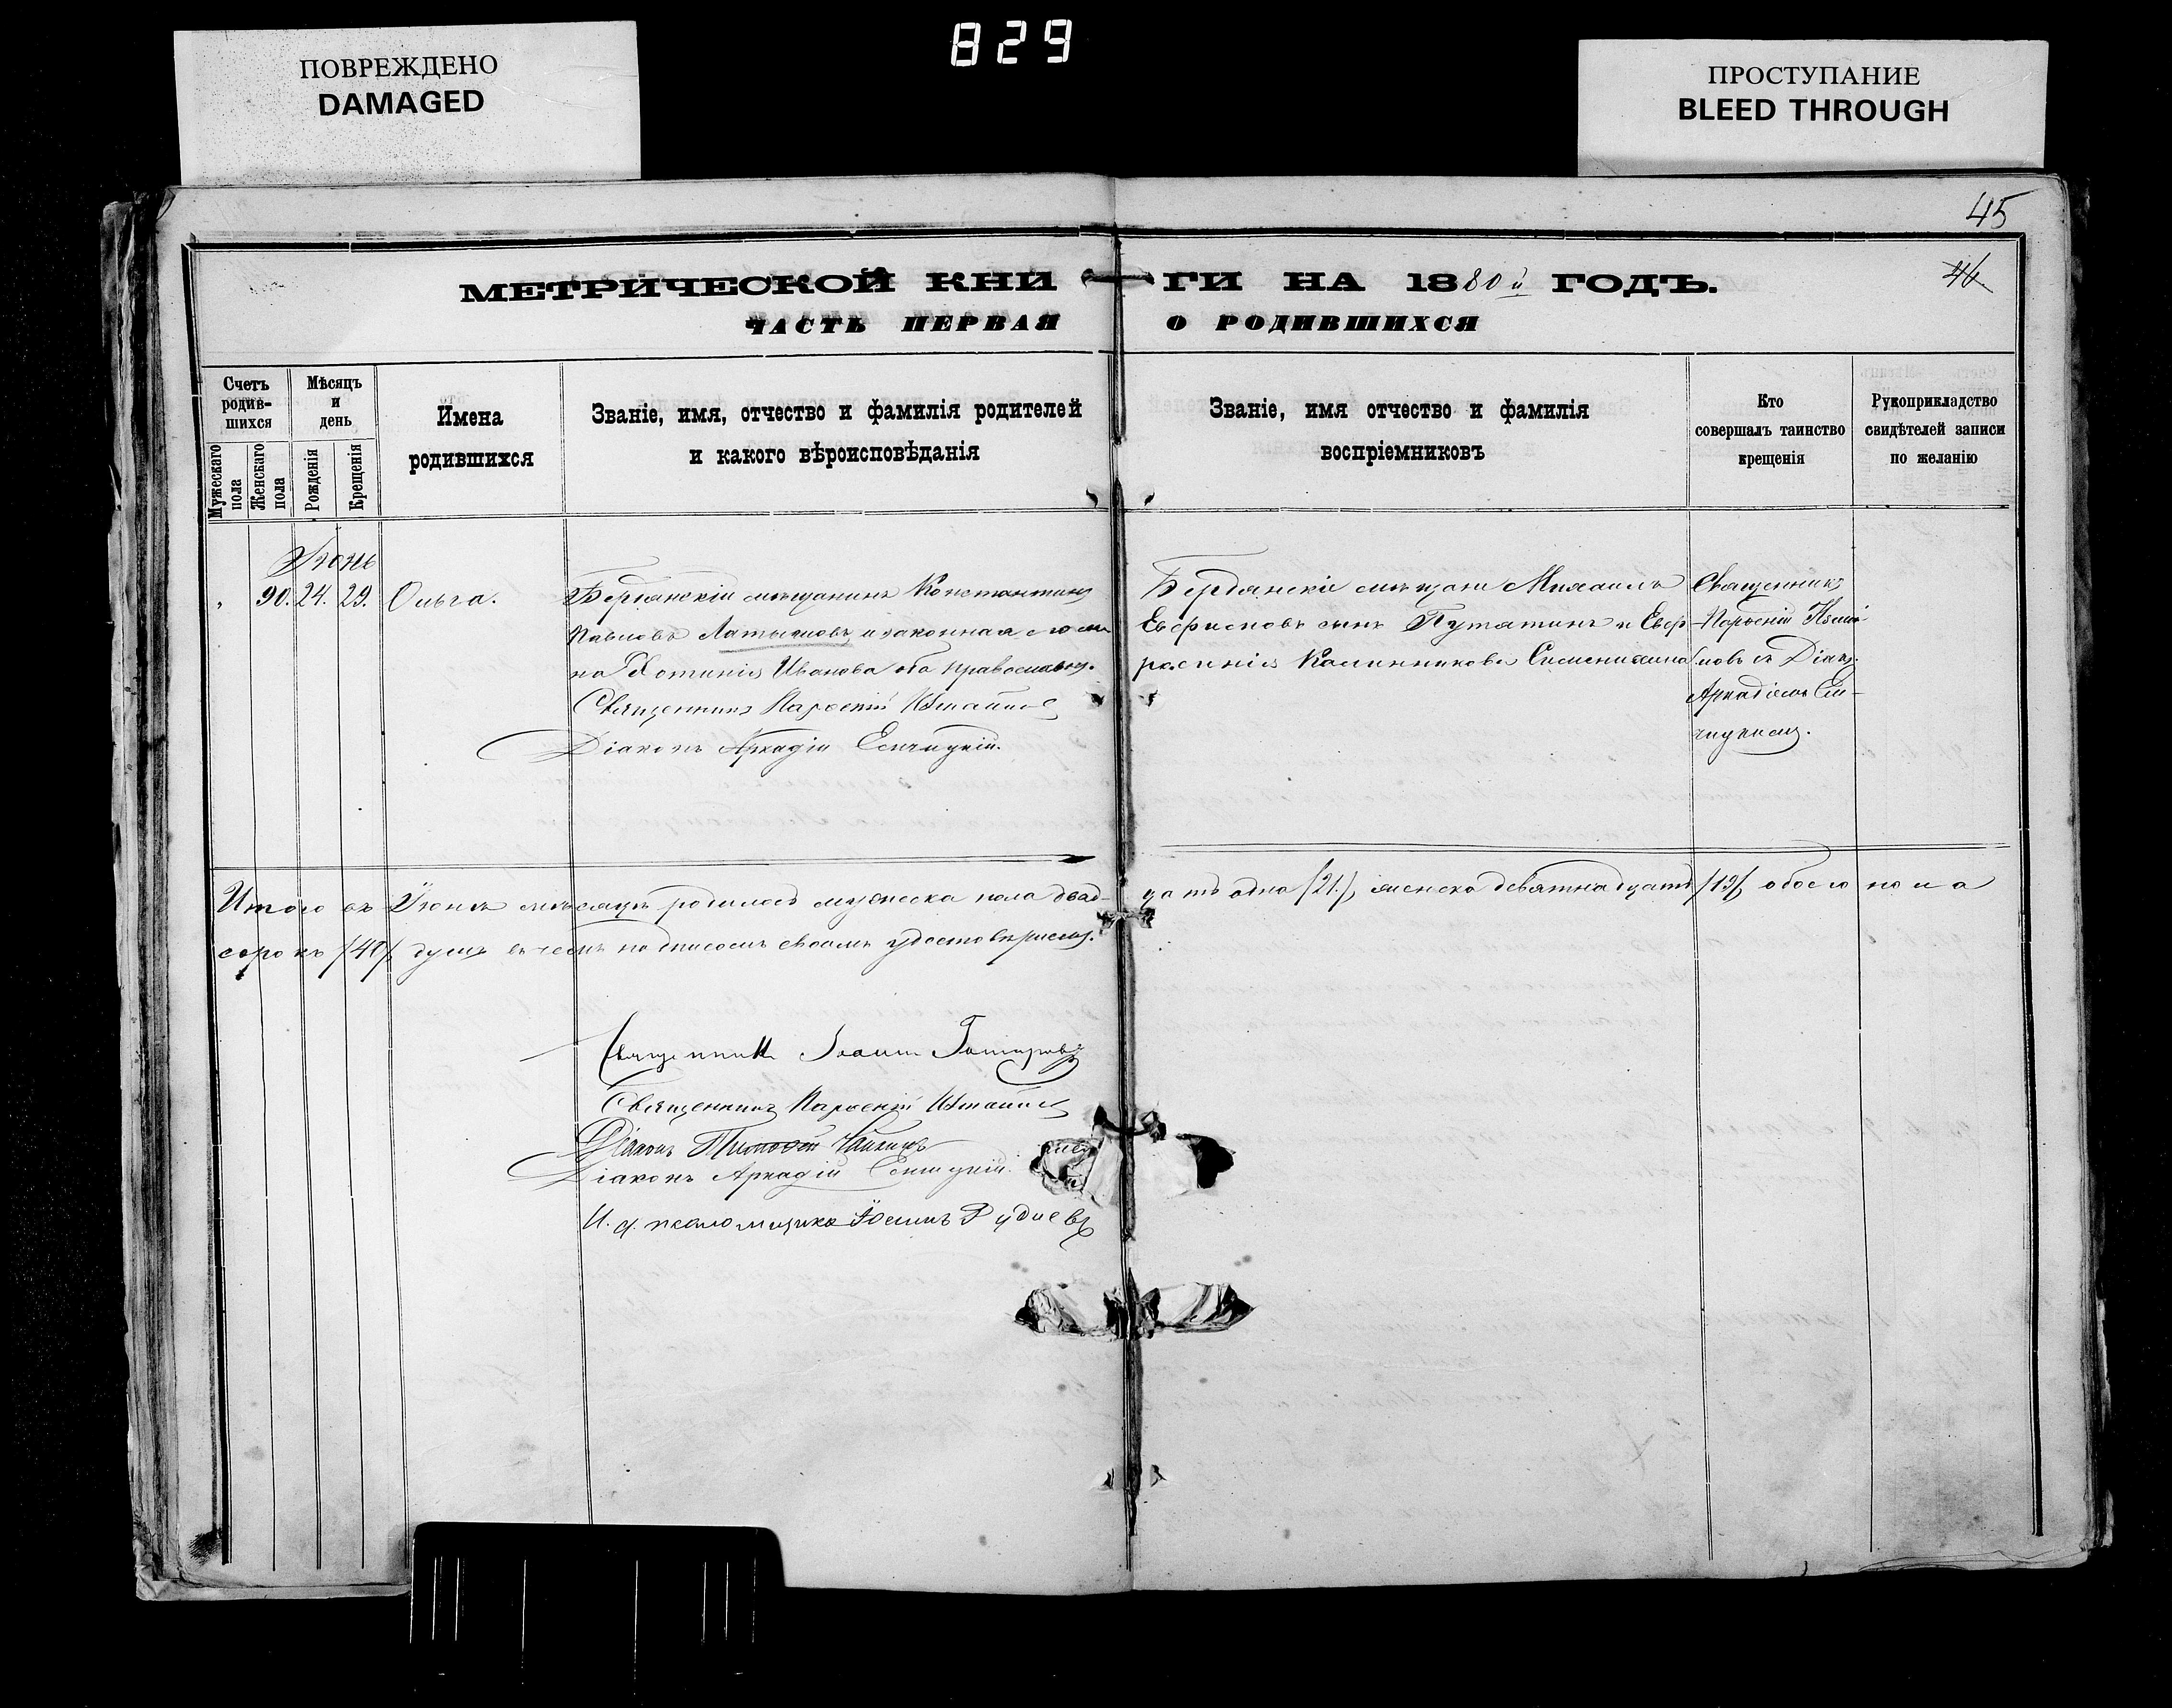 829
ПОВРЕЖДЕНО
DAMAGED
ПРОСТУПАНИЕ
BLEED THROUGH
45
46
МЕТРИЧЕСКОЙ КНИГИ НА 1880й ГОДЪ.
ЧАСТЬ ПЕРВАЯ О РОДИВШИХСЯ
Счетъ
родив-
шихся
Мужескаго
пола
Женскаго
пола
Мѣсяцъ
и
день
Рожденія
Крещенія
Имена
родившихся
Званіе, имя, отчество и фамилія родителей
и какого вѣроисповѣданія
Званіе, имя отчество и фамилія
воспріемниковъ
Кто
совершалъ таинство
крещенія
Рукоприкладство
свидѣтелей записи
по желанію
Іюнь
„ 90. 24. 29. Ольга.
Бердянскій мѣщанинъ Константинъ
Павловъ и законная его же-
на Фотинія Иванова оба православн.
Священникъ
Діаконъ Аркадій
Бердянскій мѣщани Михаилъ
сынъ Путятинъ и Евф-
расинія Калинникова
Священникъ
съ Діак.
Аркадіемъ
Итого въ Іюнѣ мѣсяцѣ родилось мужеска пола двад-
цать одна /21/, женска девятнадцать /19/, обоего пола
сорокъ /40/ душъ въ чемъ подписомъ своимъ удостовѣряемъ.
Священникъ Іоаннъ
Священникъ
Діаконъ Тимофей
Діаконъ Аркадій
И. д. псаломщика